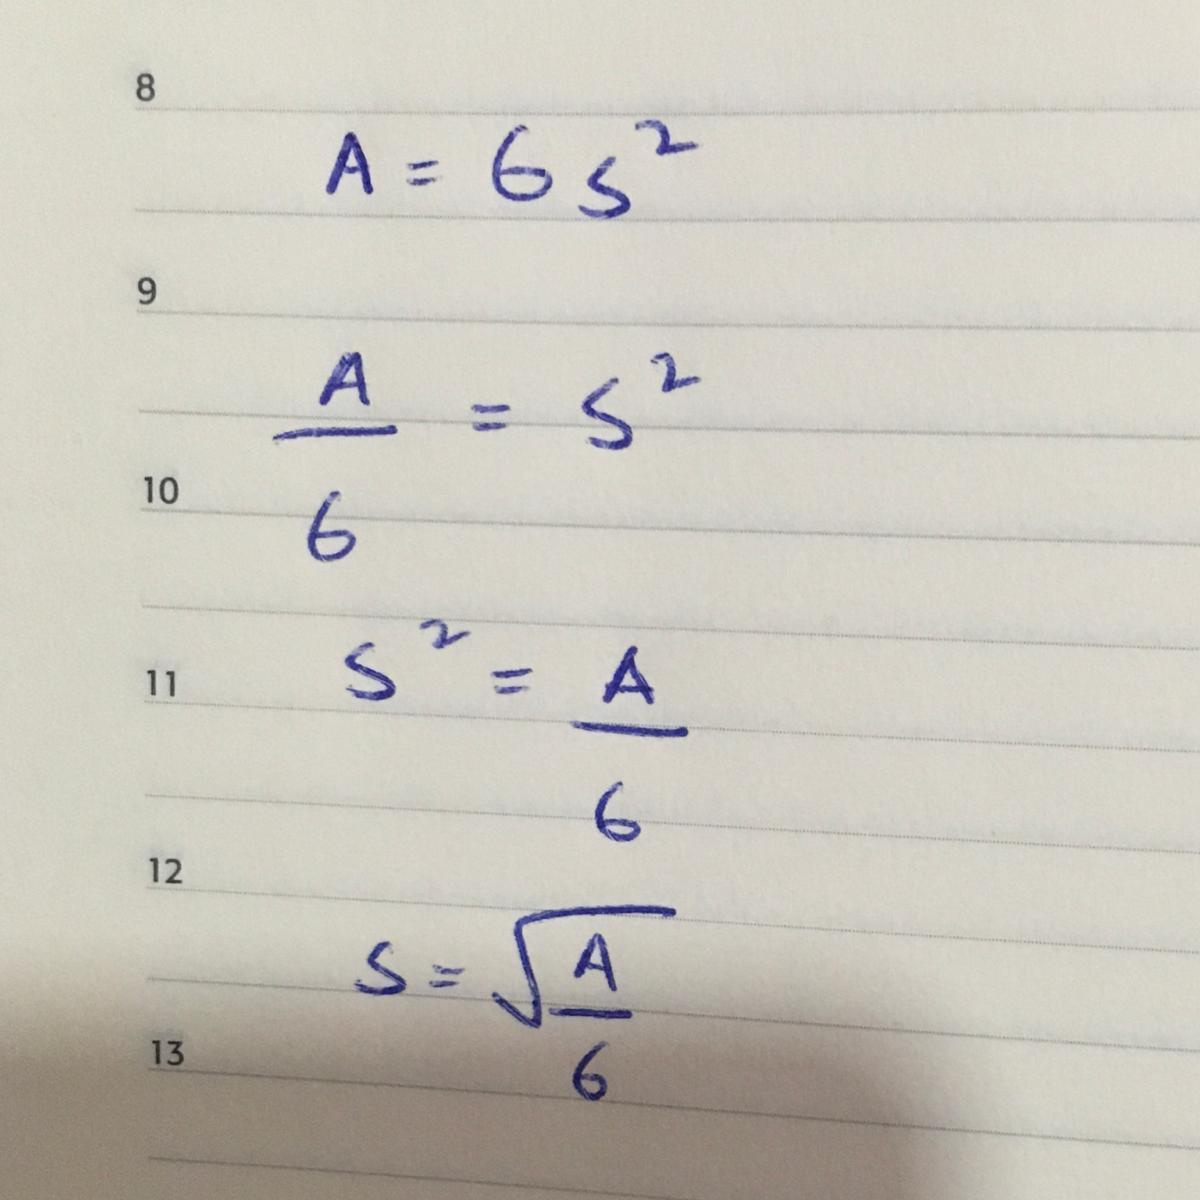 8
A = 6s²
9
A/6 = s²
10
11
s² = A/6
12
s = √(A/6)
13